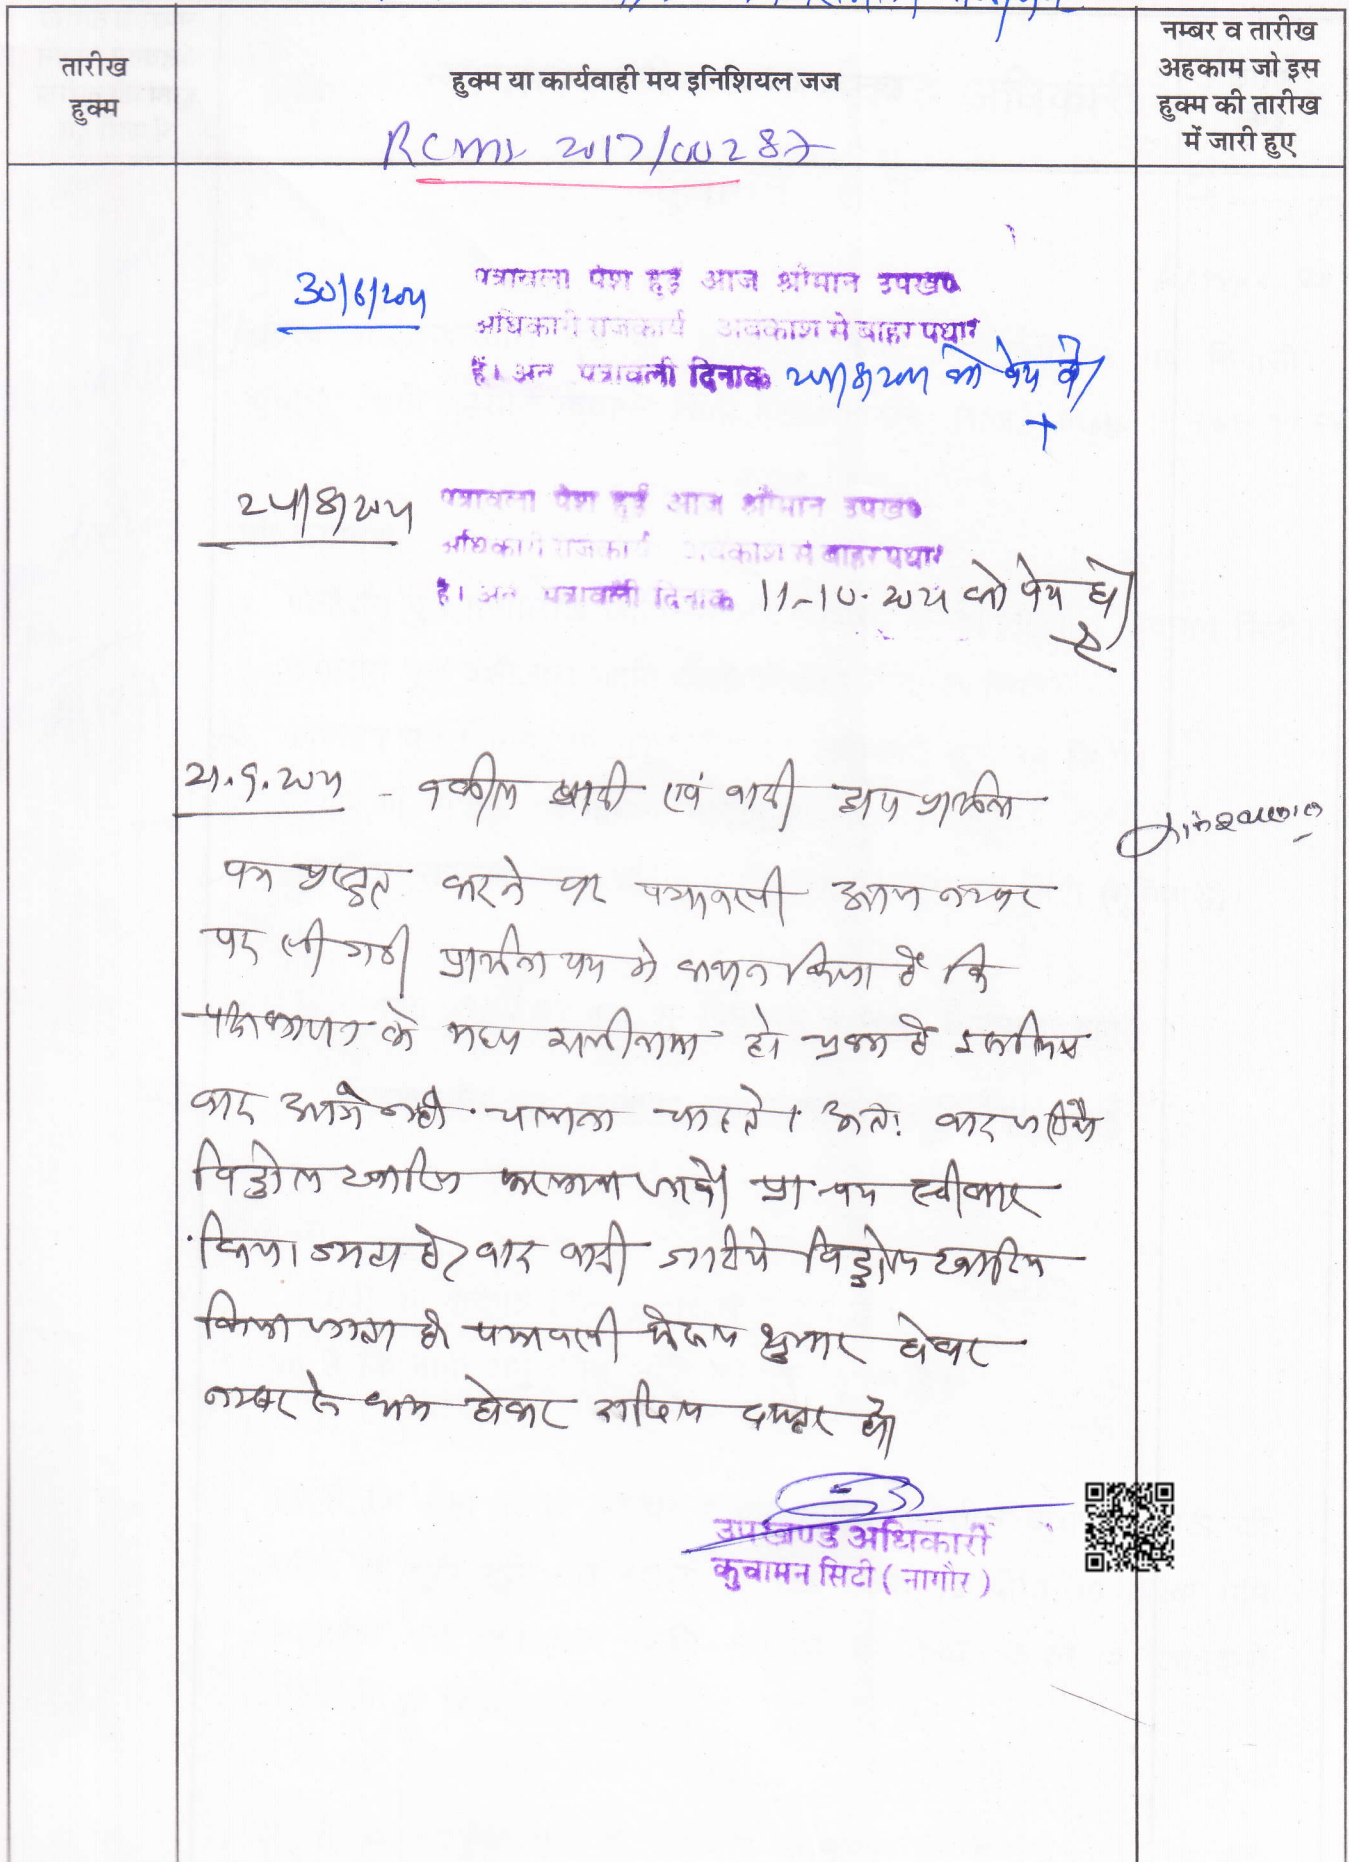 तारीख
हुक्म
हुक्म या कार्यवाही मय इनिशियल जज
नम्बर व तारीख
अहकाम जो इस
हुक्म की तारीख
में जारी हुए
RCMS 2017/00287
30/6/2021 पत्रावली पेश हुई आज श्रीमान उपखण्ड
अधिकारी राजकार्य अवकाश से बाहर पधारे
है। अतः पत्रावली दिनांक को पेश हो
पत्रावली पेश हुई आज श्रीमान उपखण्ड
अधिकारी राजकार्य अवकाश से बाहर पधारे
है। अतः पत्रावली दिनांक 11-10-2021 को पेश हो
वकील वादी एवं वादी द्वारा प्रार्थना
पत्र प्रस्तुत करने पर पत्रावली आज नम्बर
पर ली गयी प्रार्थना पत्र में कथन किया है कि
पक्षकारान के मध्य राजीनामा हो चुका है इसलिए
वाद आगे नहीं चलाना चाहते। अतः वाद जरिये
विड्रोल खारिज फरमाया जावे। प्रा. पत्र स्वीकार
किया जाता है। वाद वादी जरिये विड्रोल खारिज
किया जाता है। पत्रावली फैसल शुमार होकर
नम्बर से कम होकर दाखिल दफ्तर हो।
उपखण्ड अधिकारी
कुचामन सिटी (नागौर)